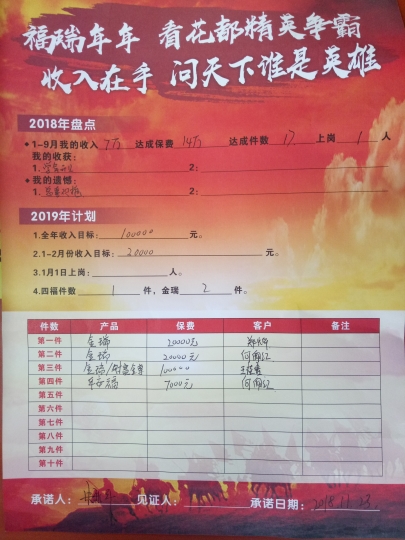 福瑞年年 看花都精英争霸
收入在手 问天下谁是英雄
2018年盘点
1-9月我的收入 7万 达成保费 14万 达成件数 17 上岗 1 人
我的收获:
1. 2:
我的遗憾:
1. 2:
2019年计划
1.全年收入目标: 100000 元。
2.1-2月份收入目标: 20000 元。
3.1月1日上岗: 人。
4.四福件数 1 件，金瑞 2 件。
件数 产品 保费 客户 备注
第一件 金瑞 20000元
第二件 金瑞 20000元 何
第三件 金瑞/财富金尊 100000 王
第四件 年安福 7000元 何
第五件
第六件
第七件
第八件
第九件
第十件
承诺人: 见证人: 承诺日期: 2018.11.23